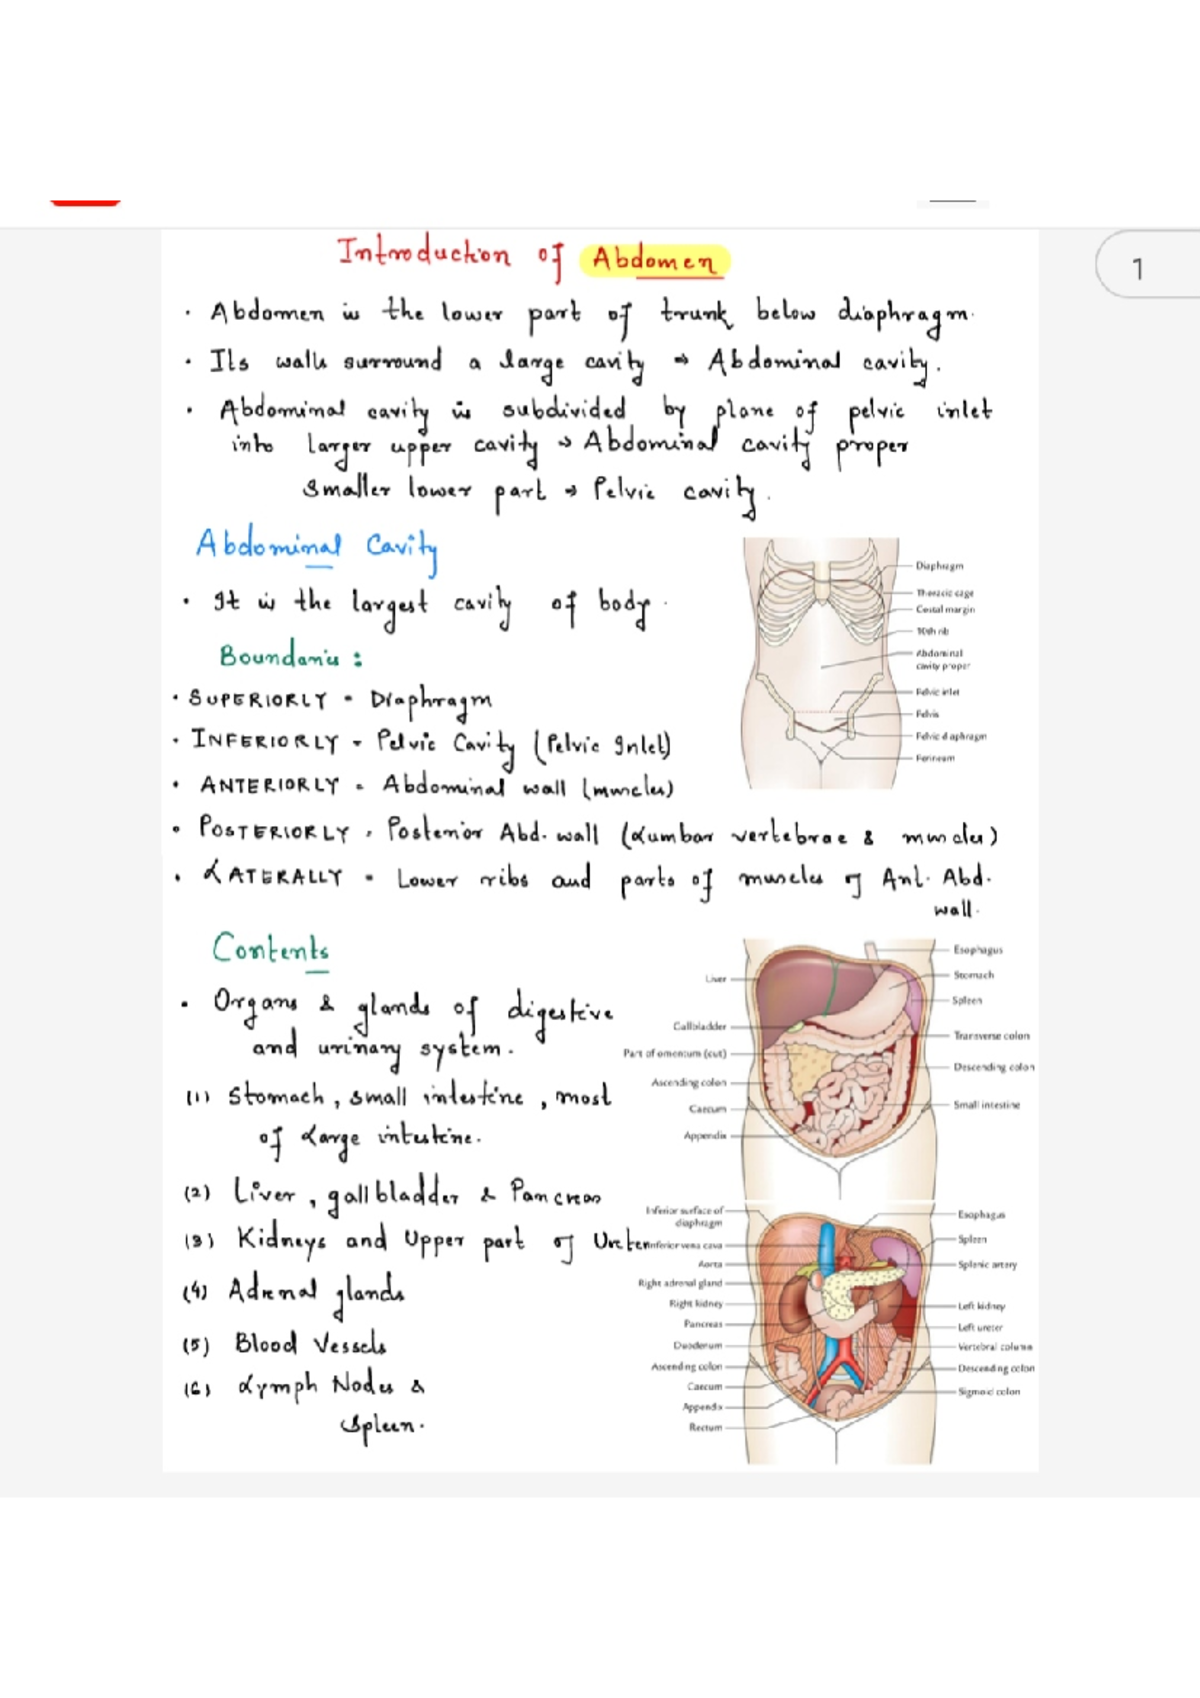 1
Introduction of Abdomen
• Abdomen is the lower part of trunk below diaphragm.
• Its walls surround a large cavity → Abdominal cavity.
• Abdominal cavity is subdivided by plane of pelvic inlet
into larger upper cavity → Abdominal cavity proper
Smaller lower part → Pelvic cavity.
Abdominal Cavity
• It is the largest cavity of body.
Boundaries :
• SUPERIORLY - Diaphragm
• INFERIORLY - Pelvic Cavity (Pelvic Inlet)
• ANTERIORLY - Abdominal wall (muscles)
• POSTERIORLY - Posterior Abd. wall (Lumbar vertebrae & muscles)
• LATERALLY - Lower ribs and parts of muscles of Ant. Abd.
wall.
Diaphragm
Thoracic cage
Costal margin
10th rib
Abdominal
cavity proper
Pelvic inlet
Pelvis
Pelvic diaphragm
Perineum
Contents
• Organs & glands of digestive
and urinary system.
(1) Stomach, small intestine, most
of Large intestine.
(2) Liver, gallbladder & Pancreas
(3) Kidneys and Upper part of Ureter
(4) Adrenal glands
(5) Blood Vessels
(6) Lymph Nodes &
Spleen.
Liver
Gallbladder
Part of omentum (cut)
Ascending colon
Caecum
Appendix
Esophagus
Stomach
Spleen
Transverse colon
Descending colon
Small intestine
Inferior surface of
diaphragm
Inferior vena cava
Aorta
Right adrenal gland
Right kidney
Pancreas
Duodenum
Ascending colon
Caecum
Appendix
Rectum
Esophagus
Spleen
Splenic artery
Left kidney
Left ureter
Vertebral column
Descending colon
Sigmoid colon